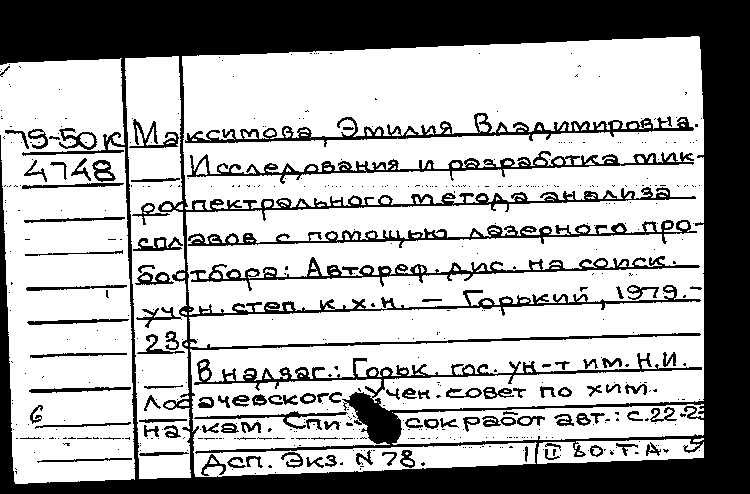 79-50к Максимова, Эмилия Владимировна.
4748 Исследования и разработка мик-
роспектрального метода анализа
сплавов с помощью лазерного про-
боотбора: Автореф. дис. на соиск.
учен. степ. к.х.н. — Горький, 1979.-
23с.
В надзаг.: Горьк. гос. ун-т им. Н.И.
Лобачевского. Учен. совет по хим.
6
наукам. Спи- сок работ авт.: с.22-23
Дсп. Экз. N 78. 1/II 80. Т.А.